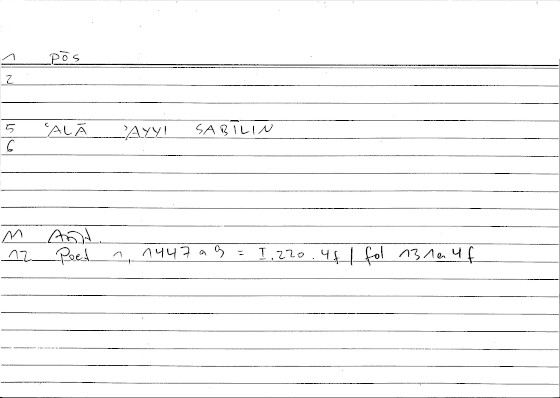 1 pōs
2
5 ʿALĀ ʾAYYI SABĪLIN
6
11 Arist.
12 Poet 1, 1447 a 9 = I.220.4f | fol 131a4f